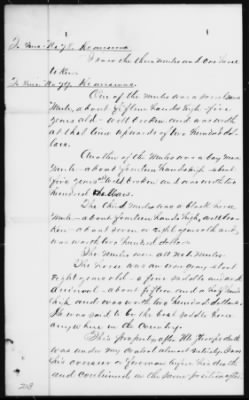 To Int. No 78. He answers.
I saw the three mules and one horse
taken.
To Int. No 79. He answers.
One of the mules was a mare
mule, about fifteen hands high, five
years old, well broken and was worth
at that time upwards of two hundred dol-
lars.
Another of the mules was a bay mare
mule about fourteen hands high about
five years old well broken and was worth two
hundred dollars.
The third mule was a black horse
mule, about fourteen hands high, well bro-
ken about seven or eight years old and
was worth two hundred dollars.
The mules were all
The horse was an
eight years old a fine saddle
animal about fifteen and a half hands
high and was worth two hundred dollars.
He was said to be the best saddle horse
anywhere in the County.
This property after Mr. death
was under my control almost entirely. I was
his overseer or foreman before his death
and continued in the same position after
208